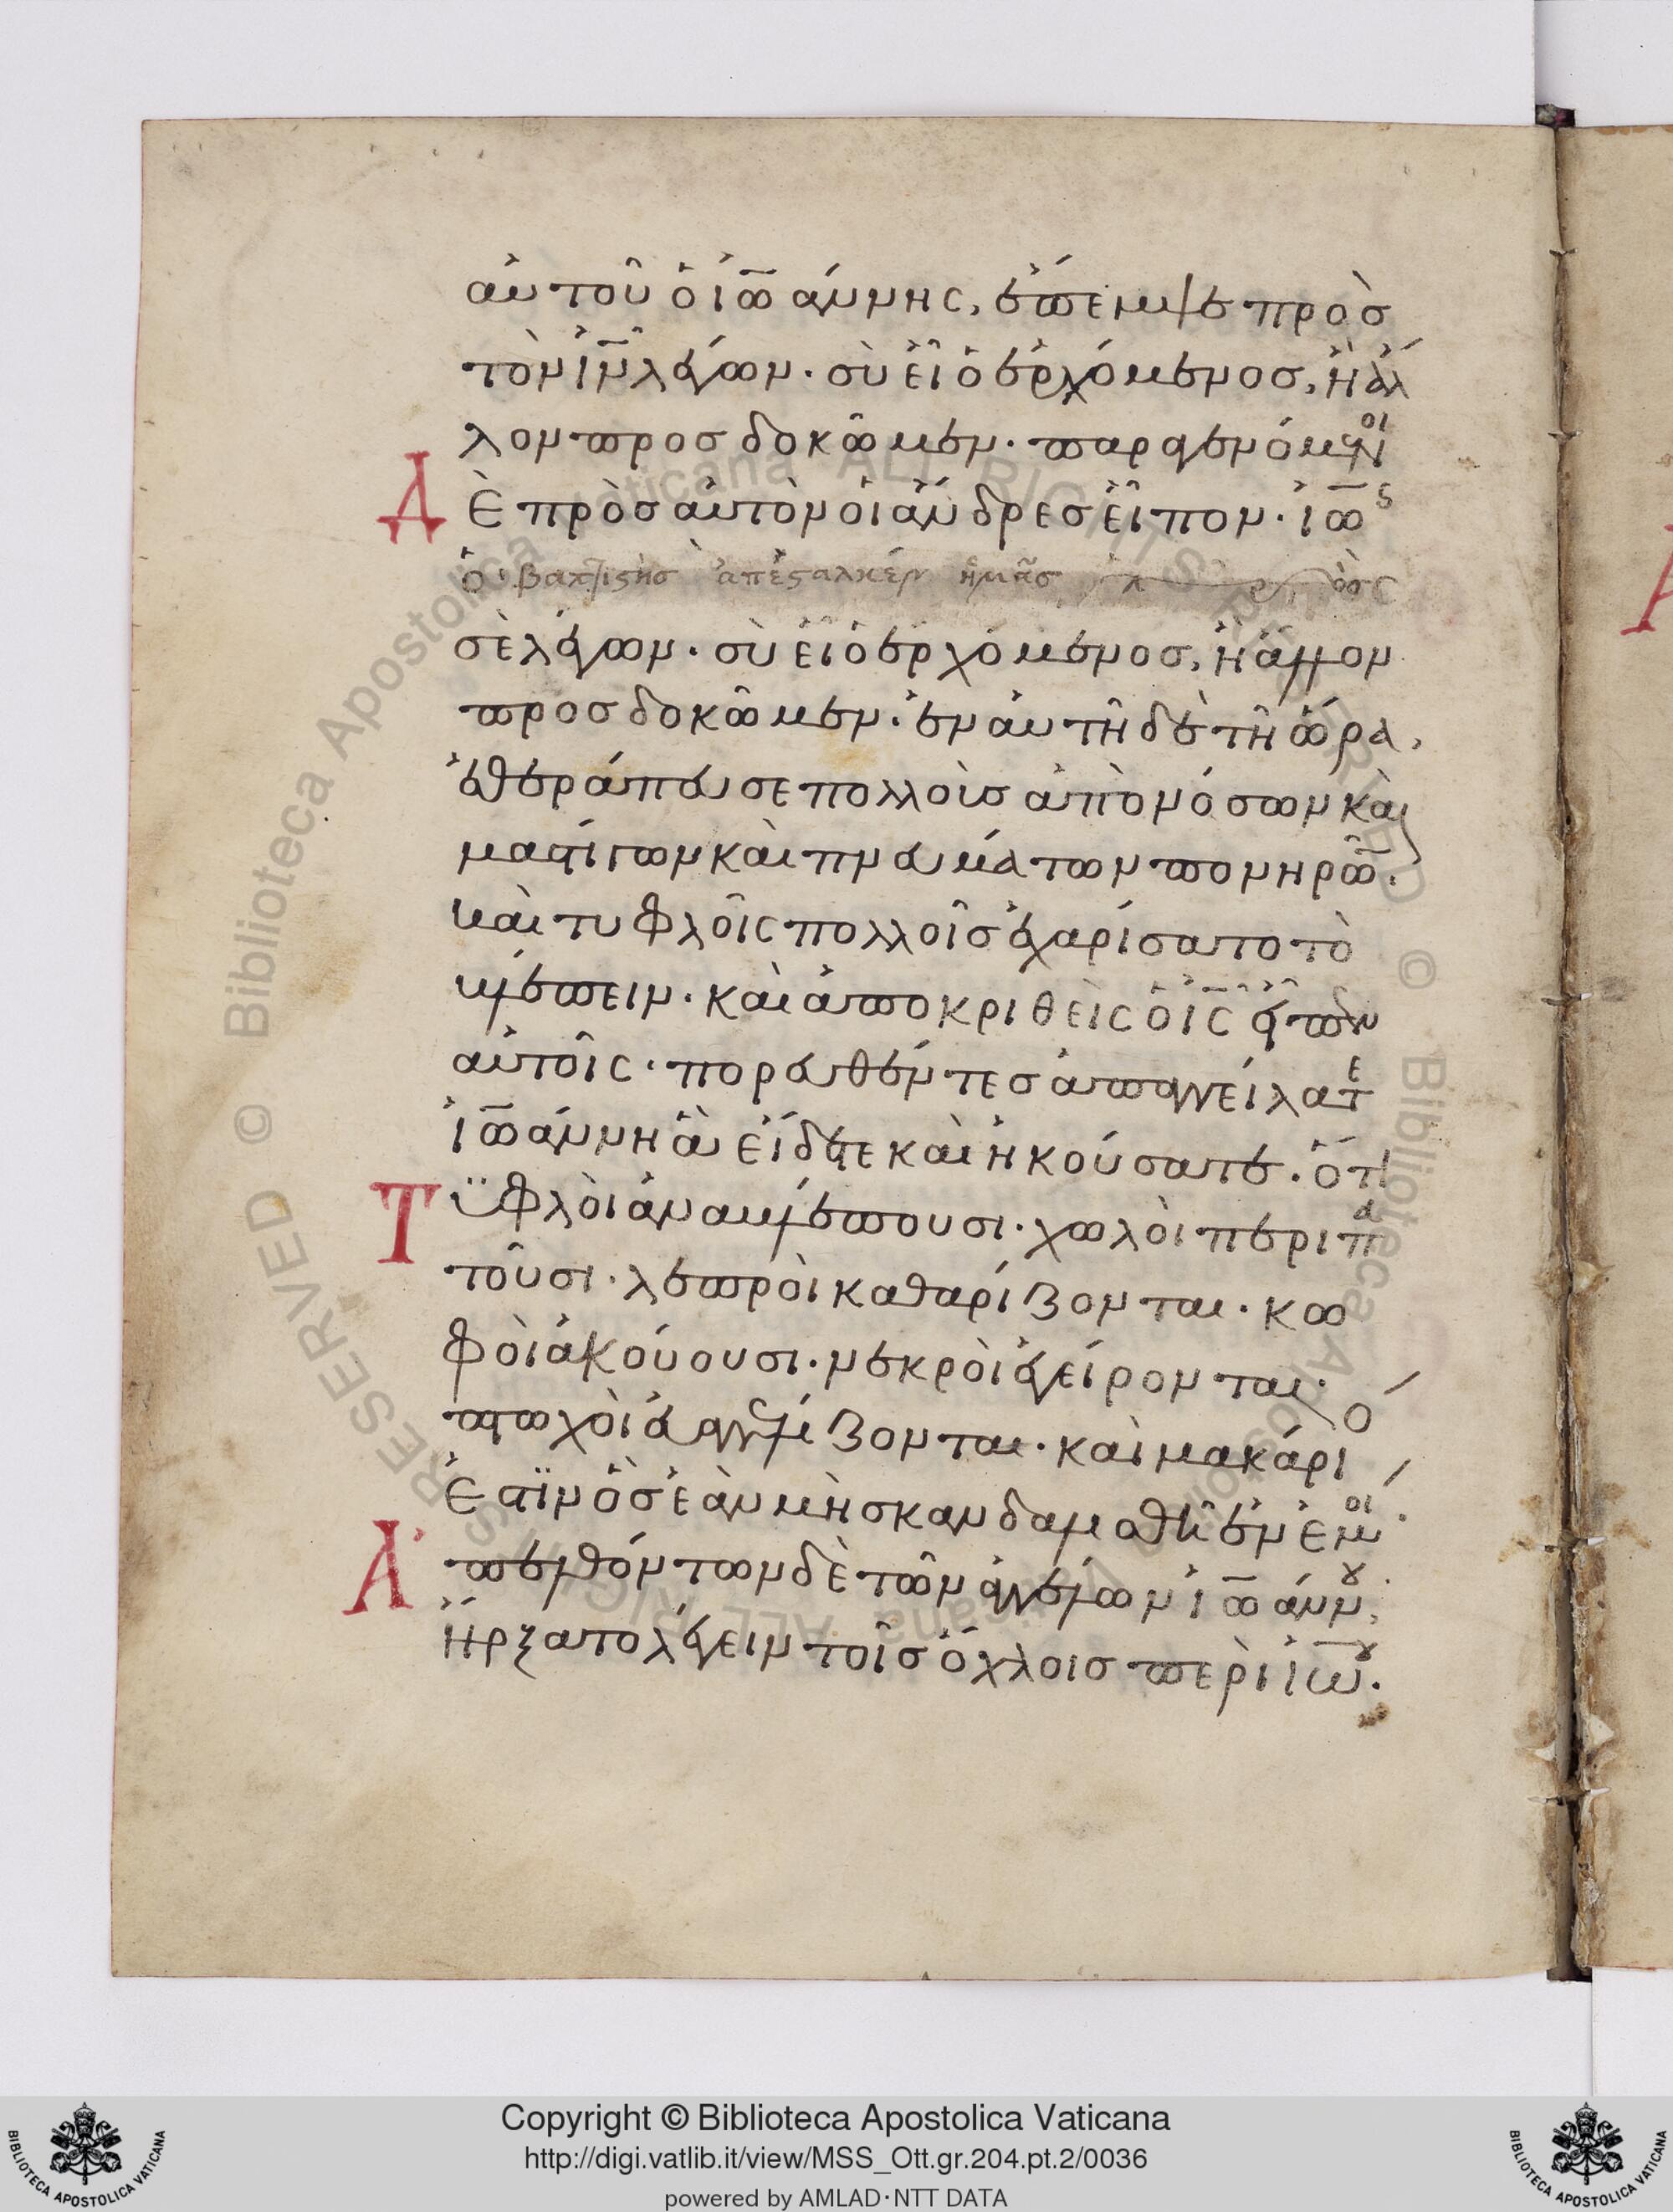 αὐτοῦ ὁ ἰω̅άννης, ἔπεμψε πρὸσ
τὸν ἰ̅ν̅ λέγων· σὺ εἶ ὁ ἐρχόμενοσ, ἢ ἄλ
λον προσδοκῶμεν· παραγενόμενοι
Δ
Ὲ πρὸσ αὐτὸν οἱ ἄνδρεσ εἶπον· ἰω̅ς
ὁ βαπτιστὴσ ἀπέσταλκεν ἡμᾶσ πρὸσ
σὲ λέγων· σὺ εἶ ὁ ἐρχόμενοσ, ἢ ἄλλον
προσδοκῶμεν· ἐν αὐτῆ δὲ τῆ ὥρα,
ἐθεράπευσε πολλοὺσ ἀπὸ νόσων καὶ
μαστίγων καὶ πνευμάτων πονηρῶ̅·
καὶ τυφλοῖς πολλοῖσ ἐχαρίσατο τὸ
βλέπειν· καὶ ἀποκριθεὶς ὁ ἰ̅ς̅ εἶπεν
αὐτοῖς· πορευθέντεσ ἀπαγγείλατε
ἰω̅άννη ἃ εἴδετε καὶ ἠκούσατε· ὅτι
Τ
ϋφλοὶ ἀναβλέπουσι· χωλοὶ περιπα
τοῦσι· λεπροὶ καθαρίζονται· κω
φοὶ ἀκούουσι· νεκροὶ ἐγείρονται·
πτωχοὶ εὐαγγελίζονται· καὶ μακάριό
ἐστϊν ὃσ ἐὰν μὴ σκανδαλισθῆ ἐν ἐμοί·
Ἀ
πελθόντων δὲ τῶν ἀγγέλων ἰω̅άννου,
ἤρξατο λέγειν τοῖσ ὄχλοισ περὶ ἰω̅ου·
Copyright © Biblioteca Apostolica Vaticana
http://digi.vatlib.it/view/MSS_Ott.gr.204.pt.2/0036
powered by AMLAD·NTT DATA
BIBLIOTECA APOSTOLICA VATICANA
BIBLIOTECA APOSTOLICA VATICANA